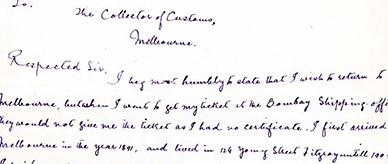 To.
The Collector of Customs,
Melbourne.
Respected Sir.
I beg most humbly to state that I wish to return to
Melbourne, but when I went to get my ticket at the Bombay Shipping offi
they would not give me the ticket as I had no certificate. I first arrived
Melbourne in the year 1891, and lived in 124 Young Street Fitzroy until 190